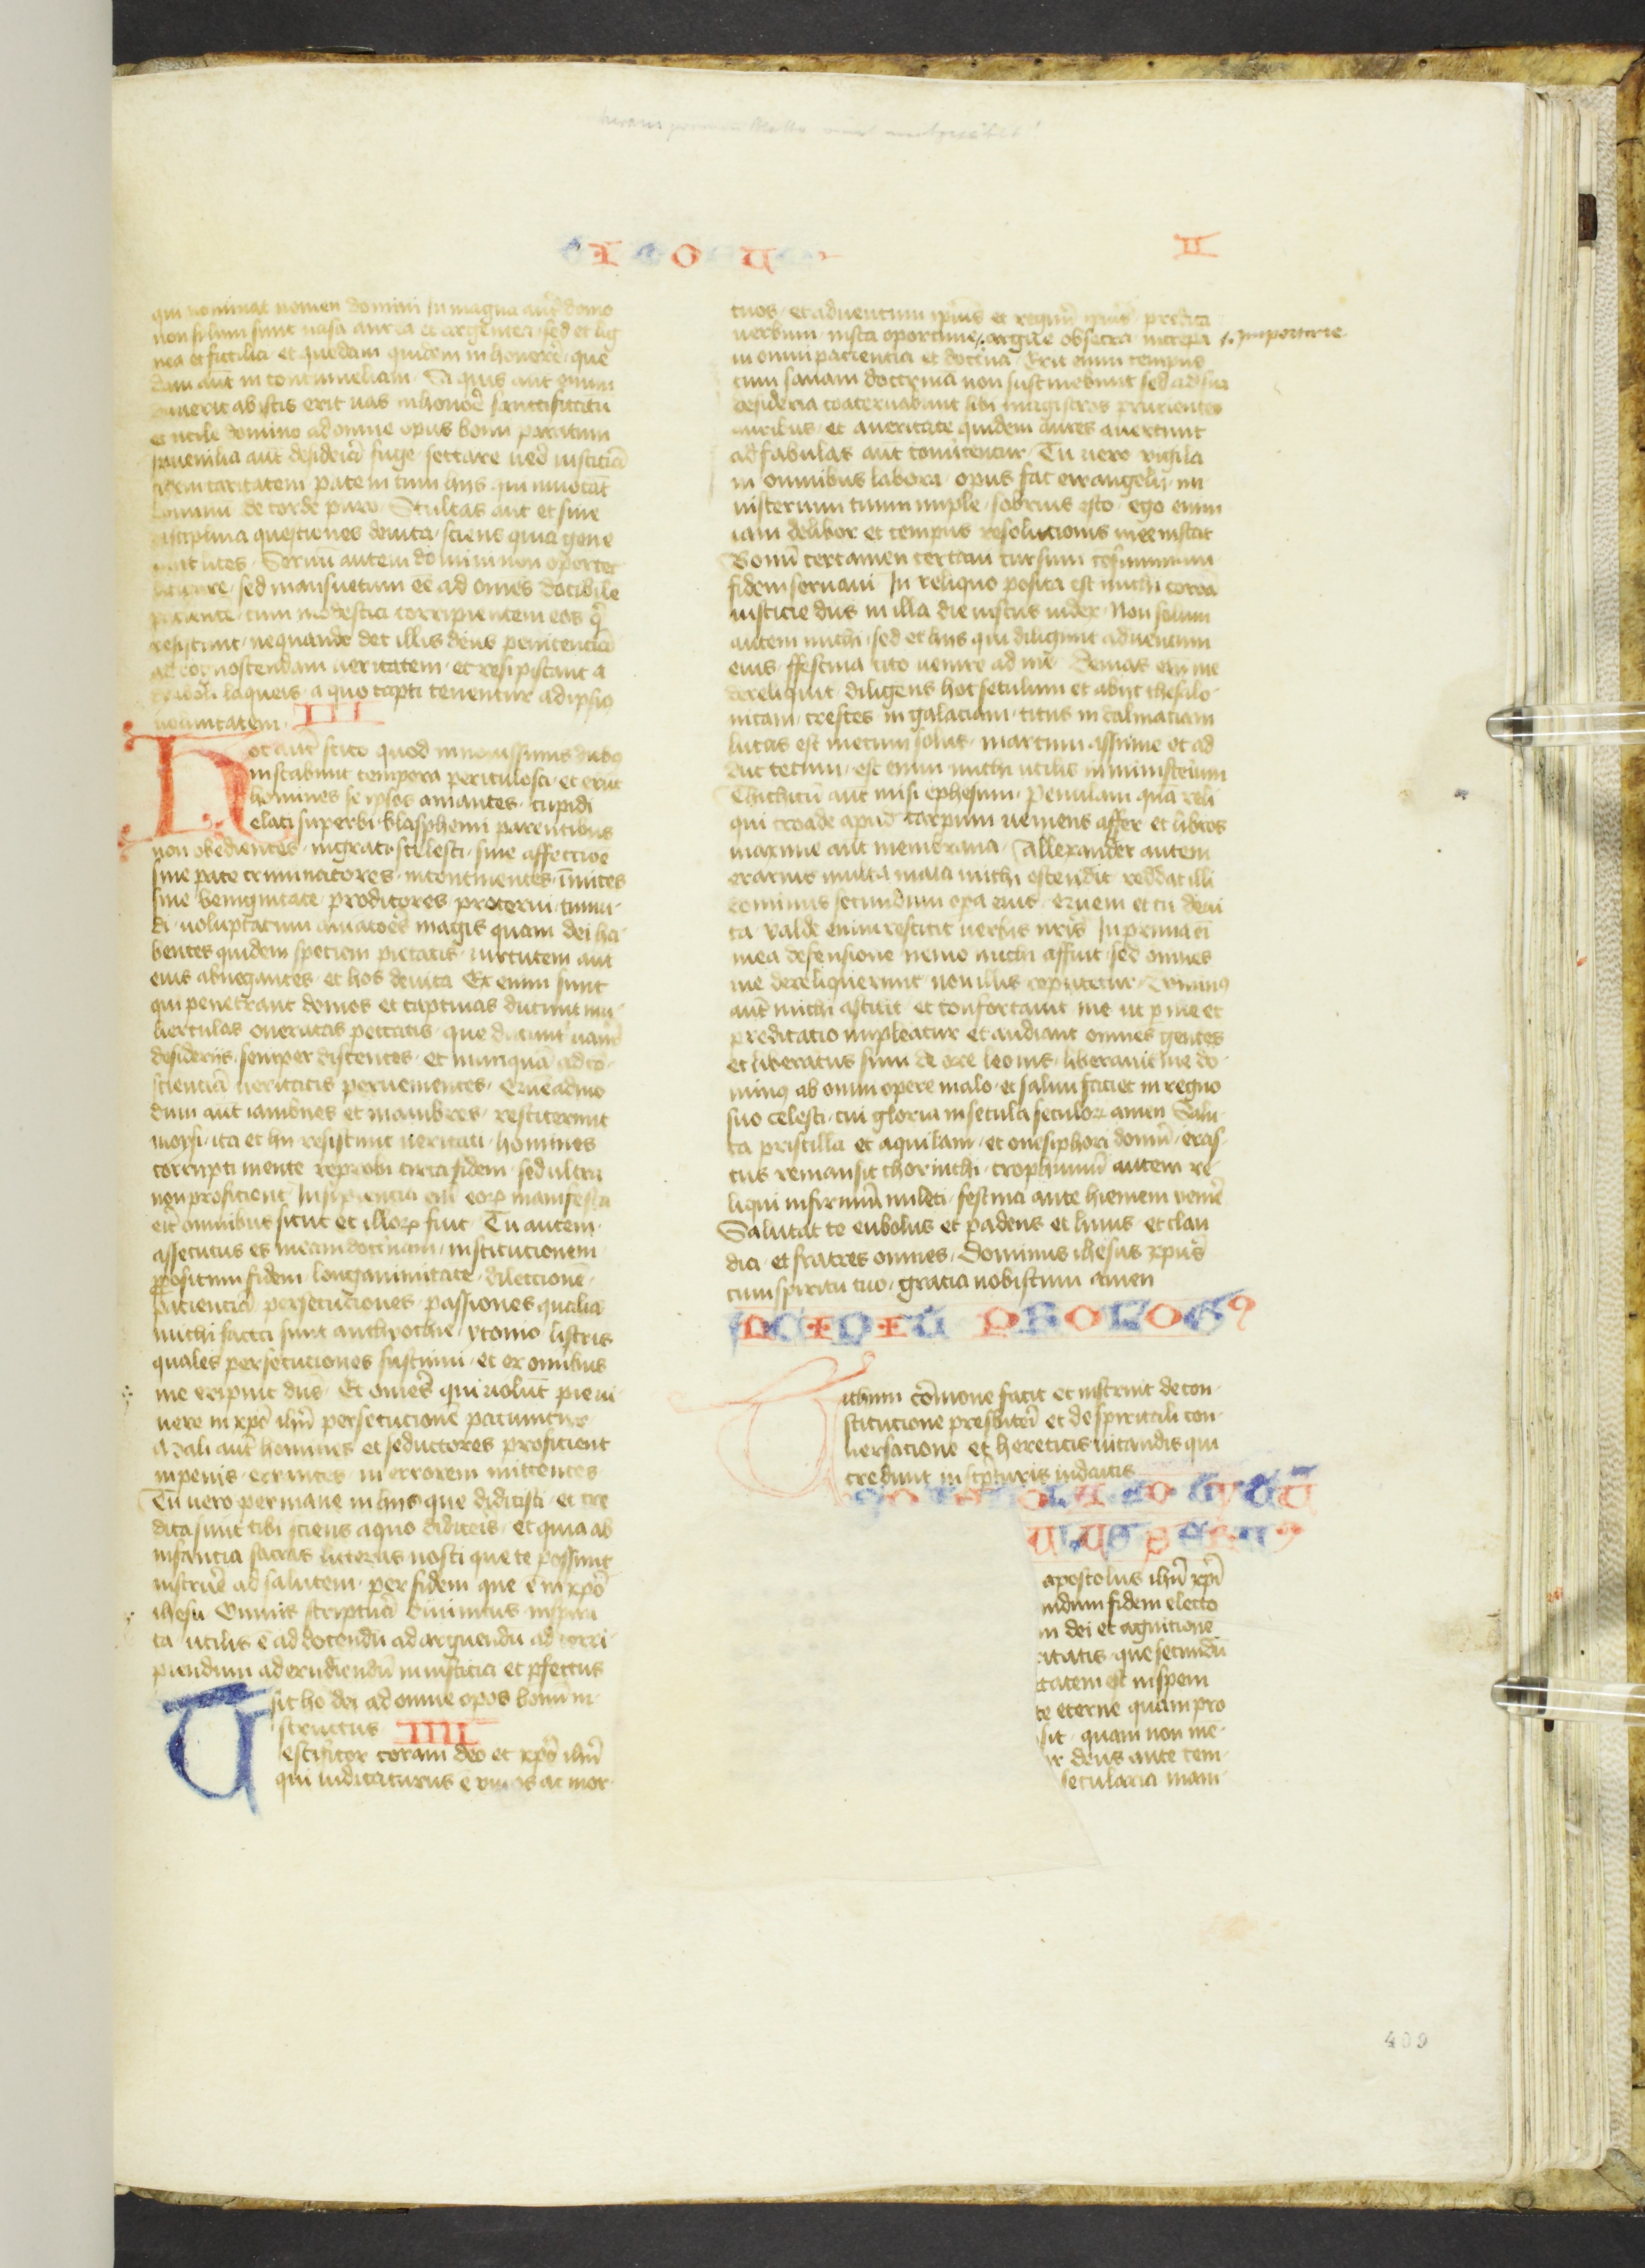 II
qui nominat nomen domini In magna aut̄ domo
non solum sunt uasa aurea et argentea sed et lig
nea et fictilia et quedam quidem in honorē que
dam aut̄ in contumeliam Si quis aut̄ emun
dauerit ab istis erit uas in honorē sanctificatū
et utile domino ad omne opus bonū paratum
Iuuenilia aut̄ desideria fuge sectare uero iusticiā
fidem caritatem pacem cum hiis qui inuocāt
dominū de corde puro Stultas aut̄ et sine
disciplina questiones deuita sciens quia gene
rant lites Seruū autem domini non oportet
litigare sed mansuetum eē ad om̄es docibilē
paciente cum modestia corripientem eos q̄
resistunt nequando det illis deus penitenciā
ad cognoscendam ueritatem et resipiscant a
diaboli laqueis a quo capti tenentur ad ipsiꝰ
uoluntatem III
Hoc aut̄ scito quod in nouissimis diebꝰ
instabunt tempora periculosa et erūt
homines se ipsos amantes cupidi
elati superbi blasphemi parentibus
non obedientes ingrati scelesti sine affectioē
sine pace criminatores incontinentes īmites
sine benignitate proditores proterui tumi
di uoluptatum amatoēs magis quam dei ha
bentes quidem speciem pietatis uirtutem aut̄
eius abnegantes et hos deuita Ex enim sunt
qui penetrant domos et captiuas ducunt mu
lierculas oneratas peccatis que ducunt uariis
desideriis semper discentes et nunquā ad co
scienciā ueritatis peruenientes Quēadmo
dum aut̄ iambnes et mambres restiterunt
moysi ita et hii resistunt ueritati homines
corrupti mente reprobi circa fidem sed ultra
non proficient Insipiencia eni eoꝝ manifesta
erit omnibus sicut et illoꝝ fuit Tu autem
assecutus es meam doctrinam institucionem
ꝓpositum fidem longanimitate dileccionē
pacienciā persecuciones passiones qualia
michi facta sunt anthyochie yconio listris
quales persecuciones sustinui et ex omnibus
me eripuit dn̄s Et omēs qui uolūt pie ui
uere in xp̄o ih̄u persecucionē paciuntur
Mali aut̄ homines et seductores proficient
in peius errantes in errorem mittentes
Tu uero permane in hiis que didicisti et cre
dita sunt tibi sciens a quo didiceris et quia ab
infancia sacras litteras nosti que te possunt
instruē ad salutem per fidem que ē in xp̄o
ihesu Omnis scriptura diuinitus inspira
ta utilis ē ad docendū ad arguendū ad corri
piendum ad erudiendū in iusticia et ꝑfectus
sit ho dei ad omne opos bonū in
structus IIII
Testificor coram deo et xp̄o ih̄u
qui iudicaturus ē uiuos ac mor
tuos et aduentum ipius et regnū ipius predica
uerbum insta oportune argue obsecra increpa
importune
in omni paciencia et doctrīa Erit enim tempus
cum sanam doctrinā non sustinebunt sed ad sua
desideria coaceruabunt sibi magistros prurientes
auribus et a ueritate quidem aures auertunt
ad fabulas aut̄ conuertentur Tu uero vigila
in omnibus labora opus fac ewangelii mi
nisterium tuum imple sobrius esto ego enim
iam delibor et tempus resolucionis mee instat
Bonū certamen certaui cursum cōsummaui
fidem seruaui In reliquo posita est michi corōa
iusticie dn̄s in illa die iustus iudex Non solum
autem michi sed et hiis qui diligunt aduentum
eius ffestina cito uenire ad mē Demas eni me
dereliquit diligens hoc seculum et abijt thesalo
nicam crescēs in galaciam titus in dalmaciam
lucas est mecum solus marcum assume et ad
duc tecum est enim michi utilis in ministerium
Thichicū aut̄ misi ephesum Penulam quā reli
qui troade apud carpum ueniens affer et libros
maxime aut̄ membrana Allexander autem
erarius multa mala michi ostendit reddat illi
dominus secundum opa eius quem et tu deui
ta valde enim restitit uerbis nr̄is In prima
mea defensione nemo michi affuit sed omnes
me dereliquerunt non illis reputetur Dominꝰ
aut̄ michi astitit et confortauit me ut ꝑ me et
predicatio impleatur et audiant omnes gentes
et liberatus sum de ore leonis liberauit me do
minꝰ ab omni opere malo et saluū faciet in regno
suo celesti cui gloria in secula seculoꝝ amen Salu
ta priscillā et aquilam et onesiphori domū eras
tus remansit chorinthi trophimū autem re
liqui infirmū mileti festina ante hiemem uenīe
Salutat te eubolus et pudens et linus et clau
dia et fratres omnes Dominus ihesus xpūs
cum spiritu tuo gracia nobiscum amen
PROLOGꝰ
Titum cōmone facit et instruit de con
stitucione presbiteri et de spiritali con
uersacione et hereticis uitandis qui
credunt in scpturis iudaicis
apostolus ih̄u xp̄i
undum fidem electo
m dei et agnicionē
ritatis que secundū
tatem et in spem
te eterne quam pro
sit quam non mē
r deus ante tem
secularia mani
409